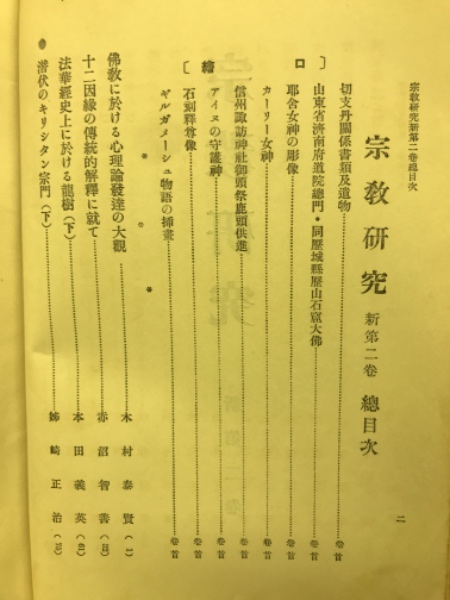 宗教研究新第二卷總目次
宗教研究 新第二卷 總目次
〔口繪〕
切支丹關係書類及遺物……卷首
山東省濟南府道院總門・同歷城縣歷山石窟大佛……卷首
耶舍女神の彫像……卷首
カーリー女神……卷首
信州諏訪神社御頭祭鹿頭供進……卷首
アイヌの守護神……卷首
石刻釋尊像……卷首
ギルガメーシュ物語の揷畫……卷首
佛敎に於ける心理論發達の大觀……木村泰賢
十二因緣の傳統的解釋に就て……赤沼智善
法華經史上に於ける龍樹(下)……本田義英(61)
潛伏のキリシタン宗門(下)……姉崎正治
二